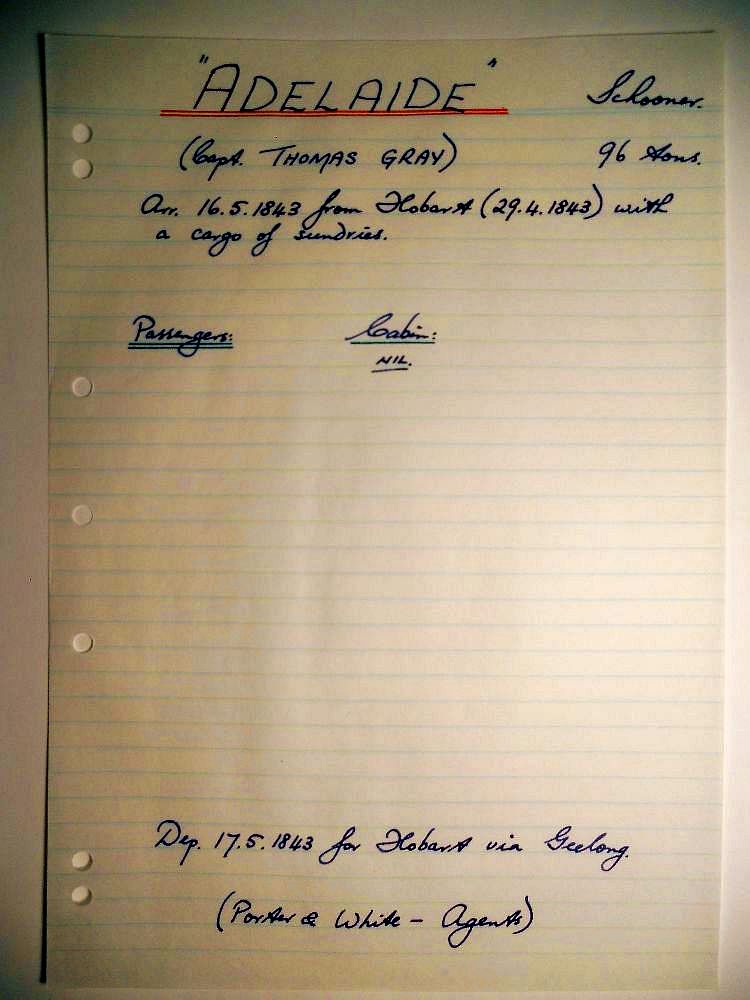 "ADELAIDE" Schooner.
(Capt. THOMAS GRAY) 96 tons.
Arr. 16.5.1843 from Hobart (29.4.1843) with
a cargo of sundries.
Passengers: Cabin:
NIL.
Dep. 17.5.1843 for Hobart via Geelong.
(Porter & White - Agents)